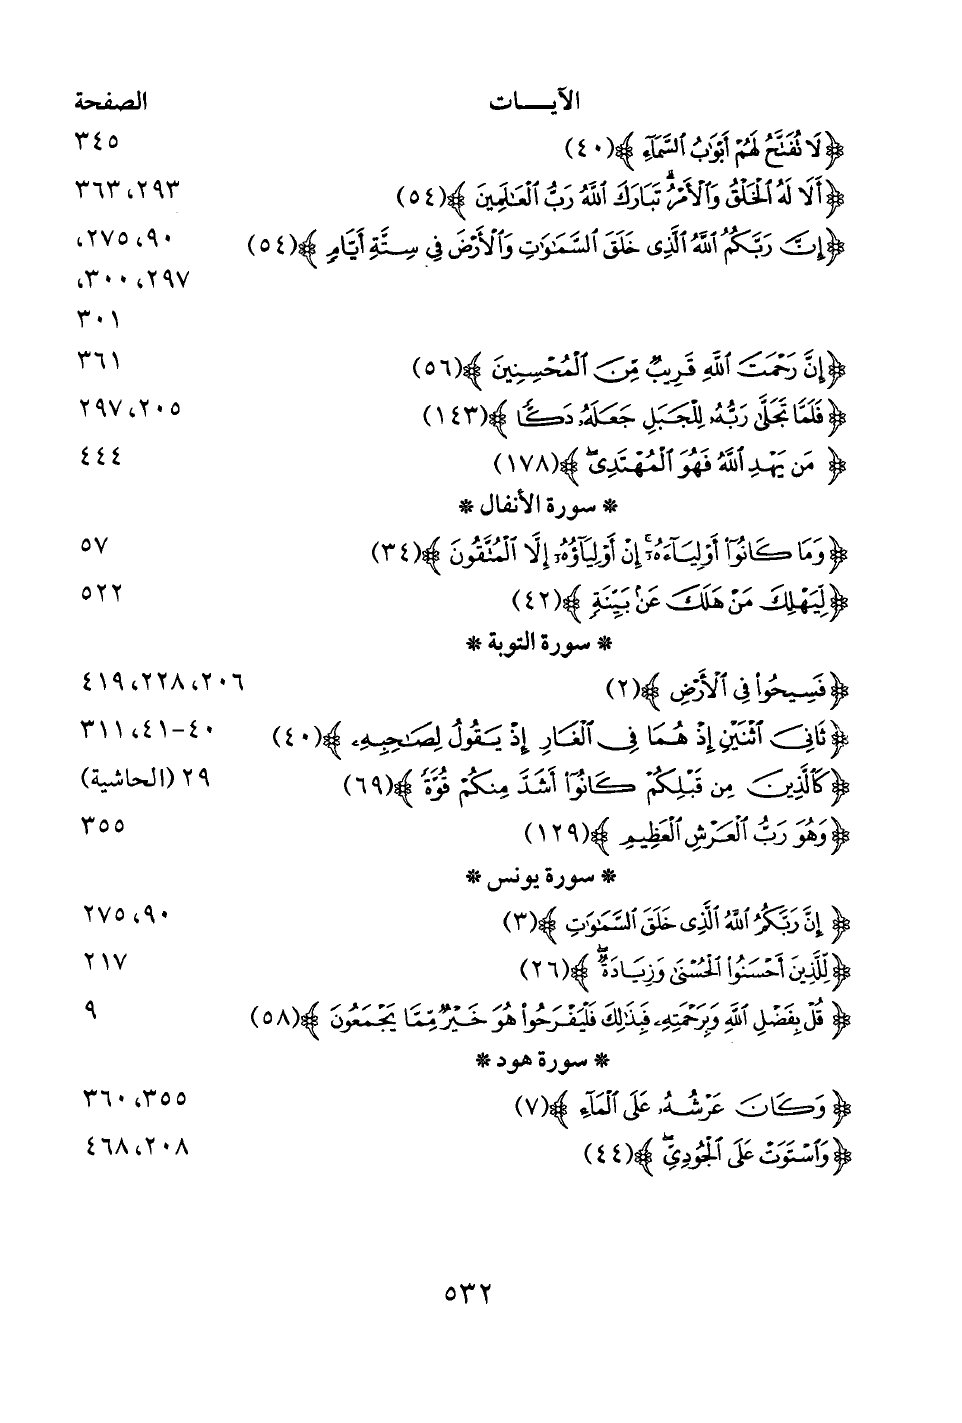 الآيـــات الصفحة
﴿لَا تُفَتَّحُ لَهُمْ أَبْوَابُ السَّمَاءِ﴾(٤٠) ٣٤٥
﴿أَلَا لَهُ الْخَلْقُ وَالْأَمْرُ تَبَارَكَ اللَّهُ رَبُّ الْعَالَمِينَ﴾(٥٤) ٢٩٣، ٣٦٣
﴿إِنَّ رَبَّكُمُ اللَّهُ الَّذِي خَلَقَ السَّمَاوَاتِ وَالْأَرْضَ فِي سِتَّةِ أَيَّامٍ﴾(٥٤) ٩٠، ٢٧٥،
٢٩٧، ٣٠٠،
٣٠١
﴿إِنَّ رَحْمَتَ اللَّهِ قَرِيبٌ مِّنَ الْمُحْسِنِينَ﴾(٥٦) ٣٦١
﴿فَلَمَّا تَجَلَّىٰ رَبُّهُ لِلْجَبَلِ جَعَلَهُ دَكًّا﴾(١٤٣) ٢٠٥، ٢٩٧
﴿مَن يَهْدِ اللَّهُ فَهُوَ الْمُهْتَدِي﴾(١٧٨) ٤٤٤
* سورة الأنفال *
﴿وَمَا كَانُوا أَوْلِيَاءَهُ إِنْ أَوْلِيَاؤُهُ إِلَّا الْمُتَّقُونَ﴾(٣٤) ٥٧
﴿لِيَهْلِكَ مَنْ هَلَكَ عَن بَيِّنَةٍ﴾(٤٢) ٥٢٢
* سورة التوبة *
﴿فَسِيحُوا فِي الْأَرْضِ﴾(٢) ٢٠٦، ٢٢٨، ٤١٩
﴿ثَانِيَ اثْنَيْنِ إِذْ هُمَا فِي الْغَارِ إِذْ يَقُولُ لِصَاحِبِهِ﴾(٤٠) ٤٠-٤١، ٣١١
﴿كَالَّذِينَ مِن قَبْلِكُمْ كَانُوا أَشَدَّ مِنكُمْ قُوَّةً﴾(٦٩) ٢٩ (الحاشية)
﴿وَهُوَ رَبُّ الْعَرْشِ الْعَظِيمِ﴾(١٢٩) ٣٥٥
* سورة يونس *
﴿إِنَّ رَبَّكُمُ اللَّهُ الَّذِي خَلَقَ السَّمَاوَاتِ﴾(٣) ٩٠، ٢٧٥
﴿لِّلَّذِينَ أَحْسَنُوا الْحُسْنَىٰ وَزِيَادَةٌ﴾(٢٦) ٢١٧
﴿قُلْ بِفَضْلِ اللَّهِ وَبِرَحْمَتِهِ فَبِذَٰلِكَ فَلْيَفْرَحُوا هُوَ خَيْرٌ مِّمَّا يَجْمَعُونَ﴾(٥٨) ٩
* سورة هود *
﴿وَكَانَ عَرْشُهُ عَلَى الْمَاءِ﴾(٧) ٣٥٥، ٣٦٠
﴿وَاسْتَوَتْ عَلَى الْجُودِيِّ﴾(٤٤) ٢٠٨، ٤٦٨
٥٣٢